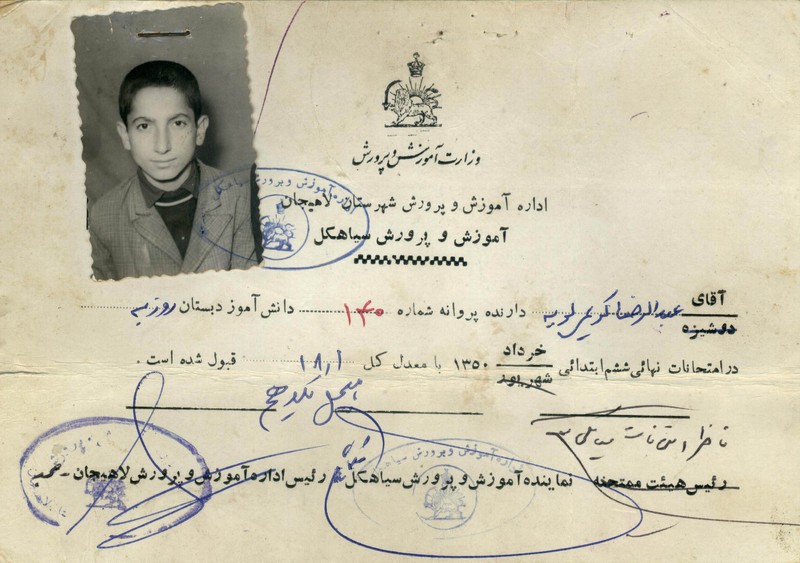 وزارت آموزش و پرورش
اداره آموزش و پرورش شهرستان لاهیجان
آموزش و پرورش سیاهکل
آقای عبدالرضا دارنده پروانه شماره ۱۴۰ دانش آموز دبستان روزبه
دوشیزه
در امتحانات نهائی ششم ابتدائی خرداد ۱۳۵۰ با معدل کل ۱۸٫۱ قبول شده است.
شهریور
ناظر امتحانات سیاهکل
رئیس هیئت ممتحنه نماینده آموزش و پرورش سیاهکل رئیس اداره آموزش و پرورش لاهیجان
آموزش و پرورش سیاهکل
آموزش و پرورش سیاهکل